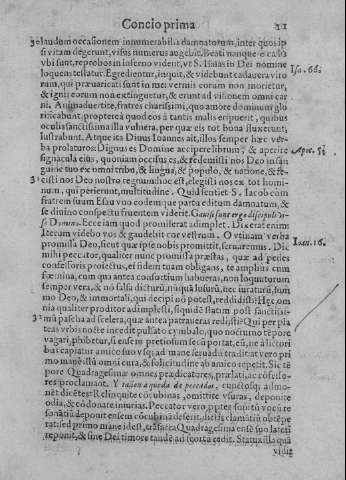 Concio prima
laudem occasionem innumerabilia damnatorum, inter quos ip
si vitam degerunt, visus numerus augebit. Beati nonque è cælo
vbi sunt, reprobos in inferno videnr, vt S. Isaias in Dei nomine
loquens testatur. Egredientur, inquit, & videbunt cadauera viro
Isa. 66.
rum, qui præuaricati sunt in me: vermis eorum non morietur,
& ignis eorum non extinguetur, & erunt ad visionem omni car
ni. Animaduertite, fratres charissimi, quo amore dominum glo
rificabunt, propterea quod eos á tantis malis eripuerit, quibus
oculi sanctissima illa vulnera, per quæ eis tot bona fluxerunt,
lustrabunt. Atque ita Diuus Ioannes ait, illos semper hæc ver-
ba prolaturos: Dignus es Domine accipere librum, & aperire
Apoc. 5.
signacula eius, quoniam occisus es, & redemisti nos Deo in san
guine tuo ex omni tribu, & lingua, & populo, & natione, & fe-
cisti nos Deo nostro regnum: hoc est, elegisti nos ex tot homi-
num, qui perierunt, multitudine. Quid sentiet S. Iacob cum
fratrem suum Esau vno eodemque parta editum damnatum, &
se diuino conspectu fruentem viderit. Gauisi sunt ergo discipuli vi-
so Domino. Ecce iam quod promiserat adimplet. Dixerat enim:
Iterum videbo vos, & gaudebit cor vestrum. O vtinam verba
Ioan. 16.
promissa Deo, sicut quæ ipse nobis promittit, seruaremus. Dic
mihi peccator, qualiter nunc promissa præstas, quæ ad pedes
confessoris proiectus, ei fidem tuam obligans, te amplius cum
fœmina, cum qua antea consortium habueras, non loquuturum
semper vera, & nó falsa dicturū, nūquá lusurū, nec iuraturū, sum
mo Deo, & immortali, qui decipi nó potest, reddidisti? Hęc, om
nia qualiter proditor adimplesti, siquidé statim post sanctissi-
mú pascha ad scelera, quæ antea patraueras redijsti? Qui per pla
teas vrbis nocte incedit pulsato cymbalo, quo nocturno tépore
vagari, phibetur, si ensem pretiosum secū portat, eū, ne à lictori
bus capiatur amico suo vsq; ad mane seruádū tradit at vero pri
mo mane illū omni cura, & solicitudine ab amico repetit. Sic té
pore Quadragesimæ omnes prædicatores, prælati, ac cófesso-
res proclamant. Y rason aqueda de peccados, cunctosq; admo-
nét dicétes: Relinquite cócubinas, omittite vsuras, deponite
odia, & có donate iniurias. Peccator vero ppter
sonátiū deponit ensem
rat: sed primo mane id est, trásacta Quadragesima ensé suū lateri
reponit, & sine Dei timore tandé ad scorta redit. Statua illa quá
vidit